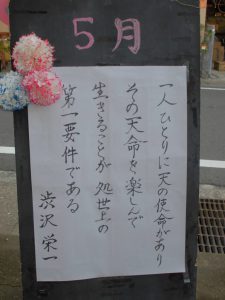 5月
一人ひとりに天の使命があり
その天命を楽しんで
生きることが処世上の
第一要件である
渋沢栄一